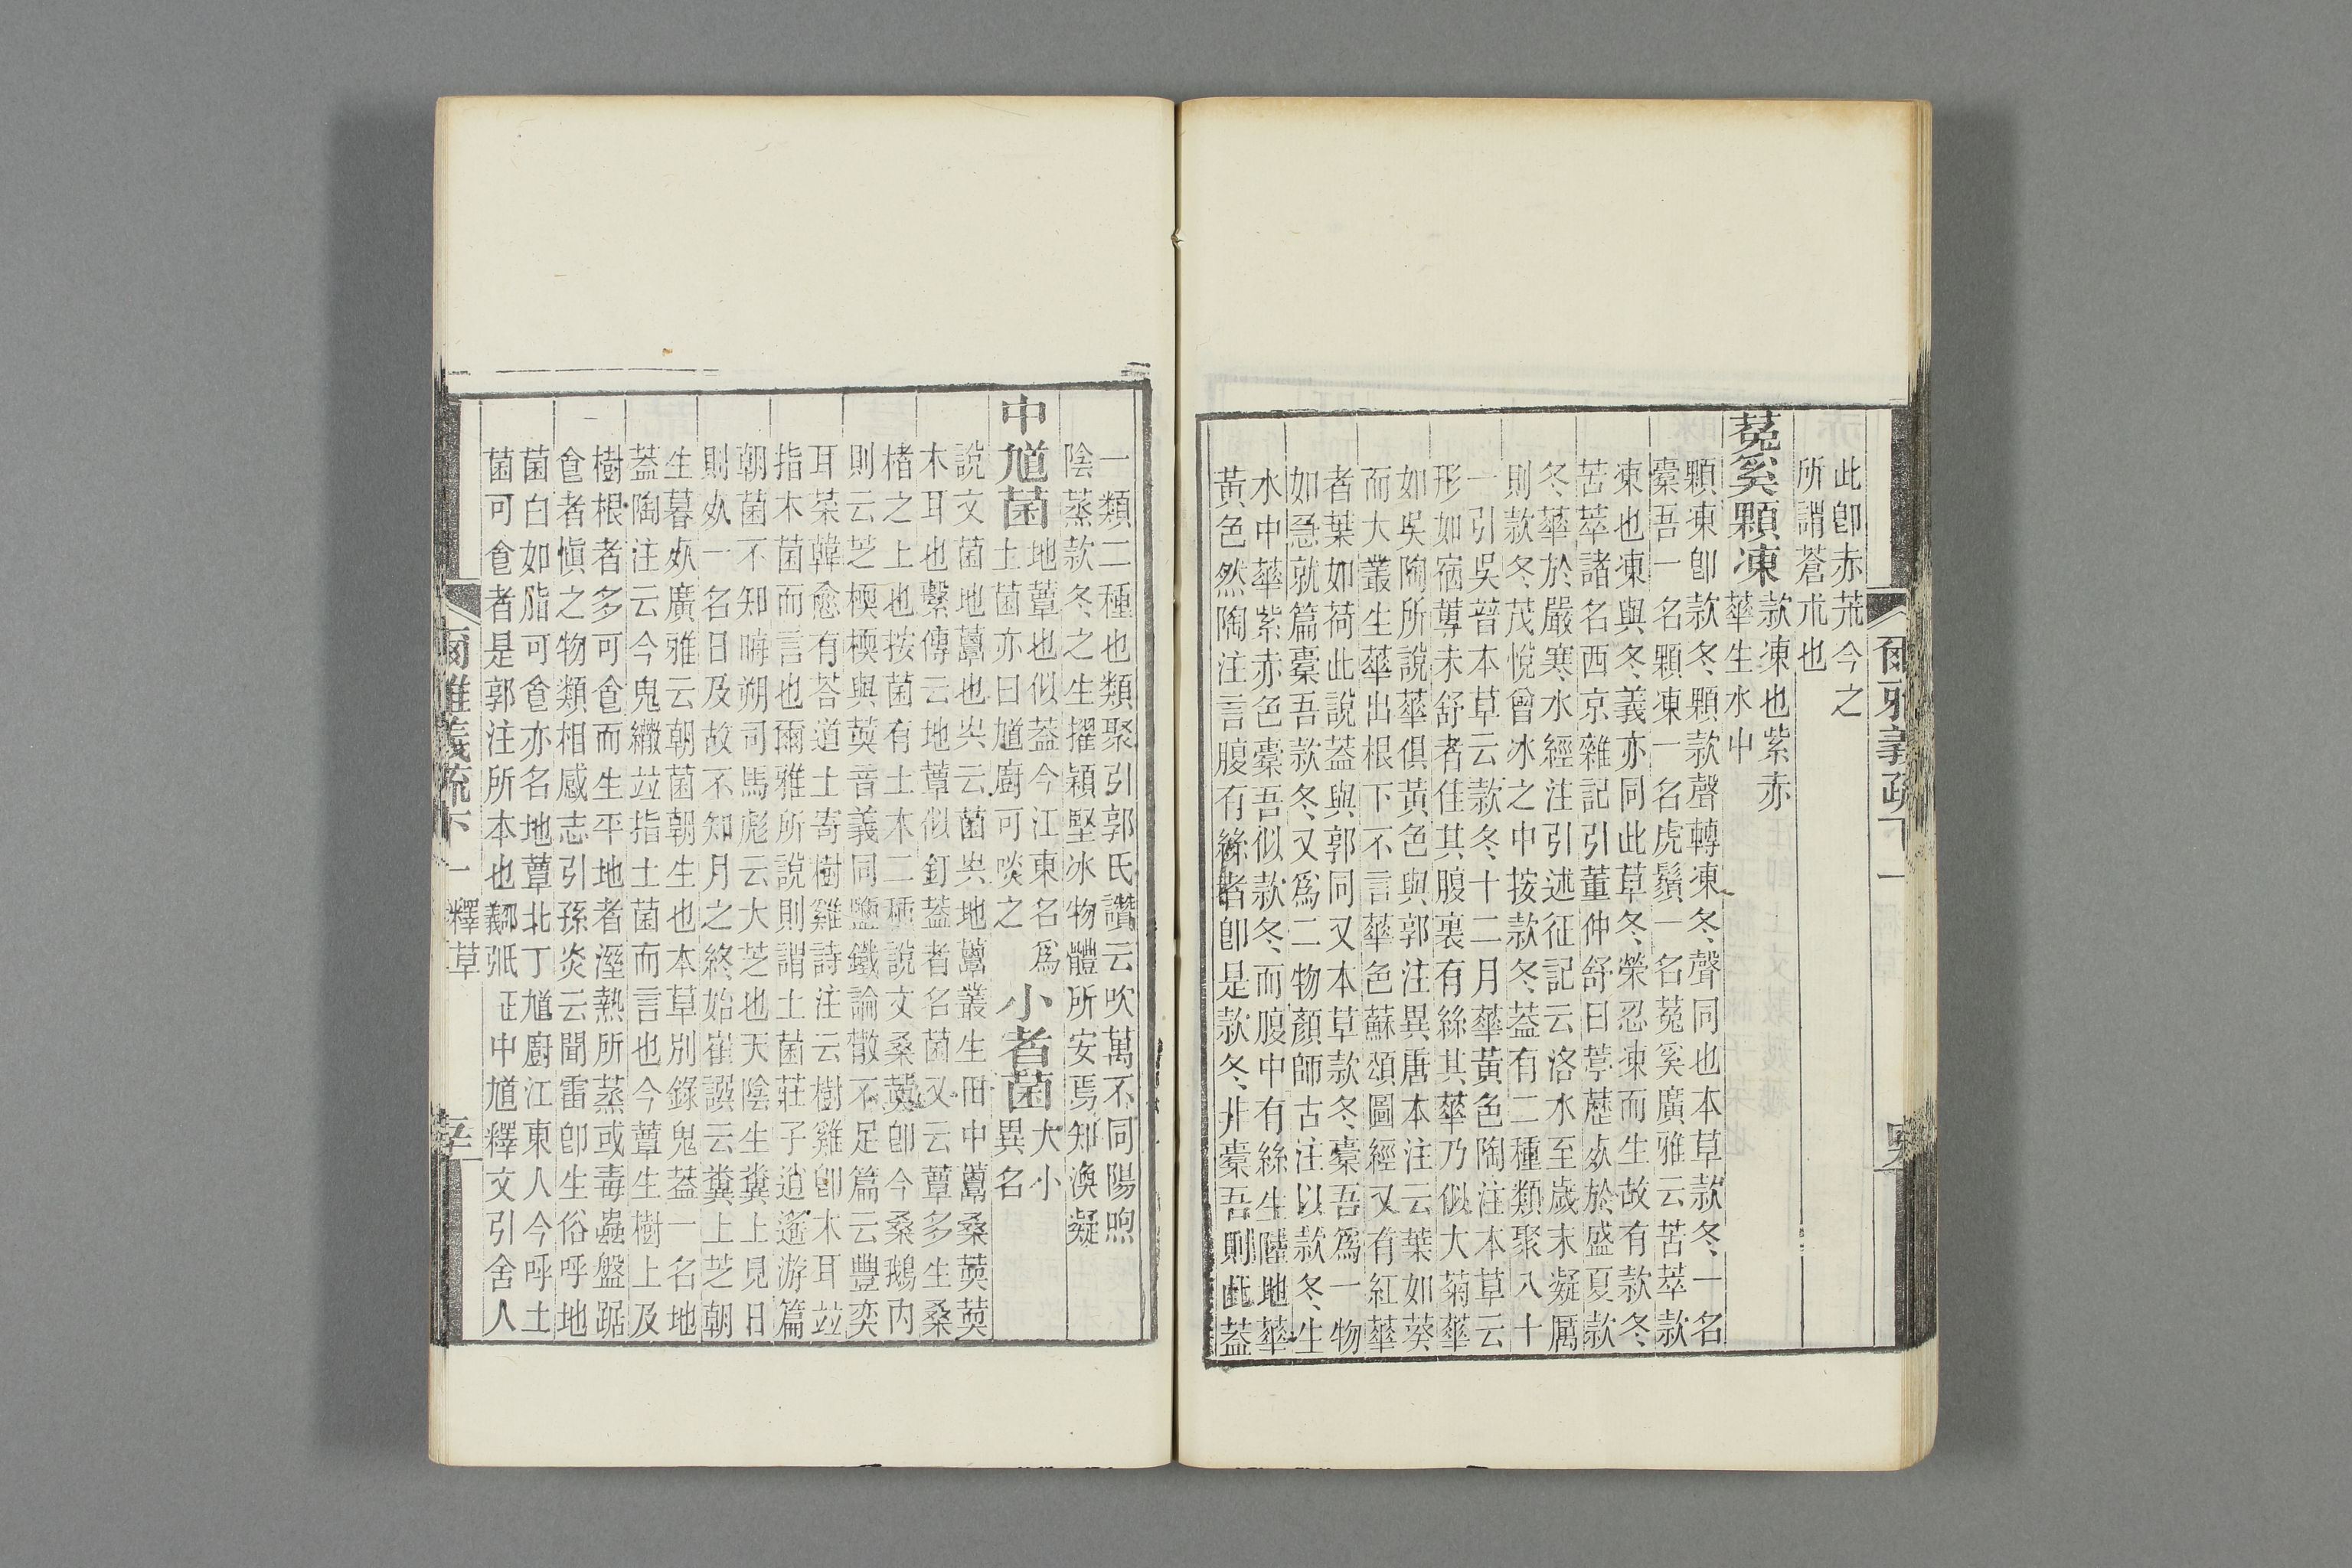 爾雅義疏下一
此卽赤茮今之
所謂蒼朮也
菟奚顆凍
款凍也紫赤
華生水中
顆凍卽款冬顆款聲轉凍冬聲同也本草款冬一名
橐吾一名顆凍一名虎鬚一名菟奚廣雅云苦萃款
凍也凍與冬義亦同此草冬榮忍凍而生故有款冬
苦萃諸名西京雜記引董仲舒曰葶藶㱙於盛夏款
冬華於嚴寒水經注引述征記云洛水至歲末凝厲
則款冬茂悅曾冰之中按款冬蓋有二種類聚八十
一引吳普本草云款冬十二月華黃色陶注本草云
形如宿蓴未舒者佳其腹裏有絲其華乃似大菊華
如吳陶所說華俱黃色與郭注異唐本注云葉如葵
而大叢生華出根下不言華色蘇頌圖經又有紅華
者葉如荷此說蓋與郭同又本草款冬橐吾爲一物
如急就篇橐吾款冬又爲二物顏師古注以款冬生
水中華紫赤色橐吾似款冬而腹中有絲生陸地華
黃色然陶注言腹有絲者卽是款冬非橐吾則此蓋
一類二種也類聚引郭氏讚云吹萬不同陽喣
陰蒸款冬之生擢穎堅冰物體所安焉知渙凝
中馗菌
地蕈也似蓋今江東名爲
土菌亦曰馗廚可啖之
小者菌
大小
異名
說文菌地蕈也㒵云菌㒵地蕈叢生田中蕈桑萸萸
木耳也繫傳云地蕈似釘蓋者名菌又云蕈多生桑
楮之上也按菌有土木二種說文桑萸卽今桑鵝肉
則云芝栭栭與萸音義同鹽鐵論散不足篇云豐奕
耳菜韓愈有荅道士寄樹雞詩注云樹雞卽木耳竝
指木菌而言也爾雅所說則謂土菌莊子逍遙游篇
朝菌不知晦朔司馬彪云大芝也天陰生糞上見日
則㱙一名日及故不知月之終始崔譔云糞上芝朝
生暮㱙廣雅云朝菌朝生也本草別錄鬼蓋一名地
蓋陶注云今鬼繖竝指土菌而言也今蕈生樹上及
樹根者多可食而生平地者溼熱所蒸或毒蟲盤踞
食者愼之物類相感志引孫炎云聞雷卽生俗呼地
菌白如脂可食亦名地蕈北丁馗廚江東人今呼土
菌可食者是郭注所本也鄭義疏正中馗釋文引舍人
爾雅義疏下一 釋草